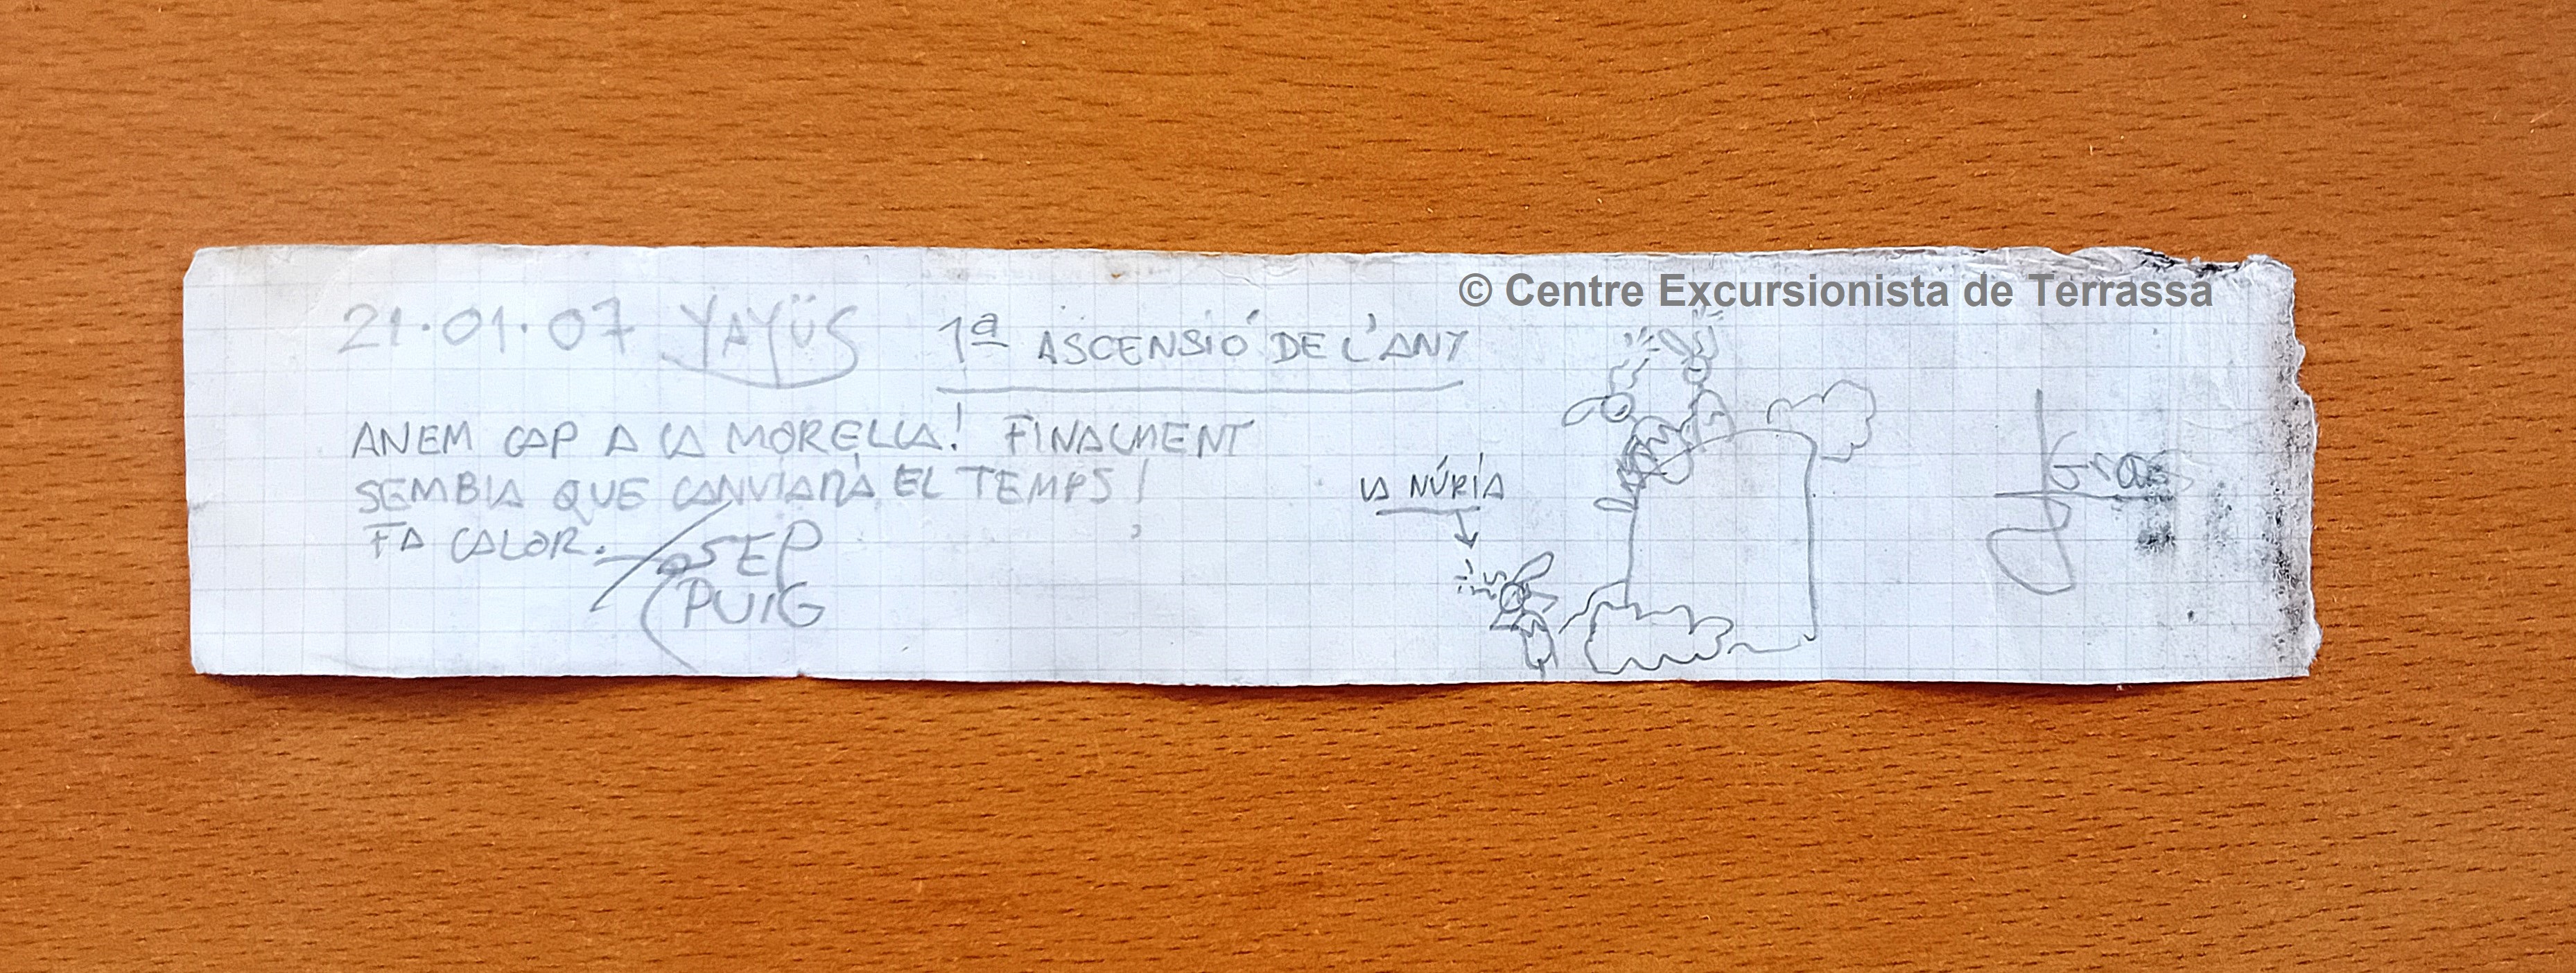 © Centre Excursionista de Terrassa
21·01·07 YAYÜS 1ª ASCENSIÓ DE L'ANY
ANEM CAP A LA MORELLA! FINALMENT
SEMBLA QUE CANVIARÀ EL TEMPS!
FA CALOR.
JOSEP
PUIG
LA NÚRIA
J Gras